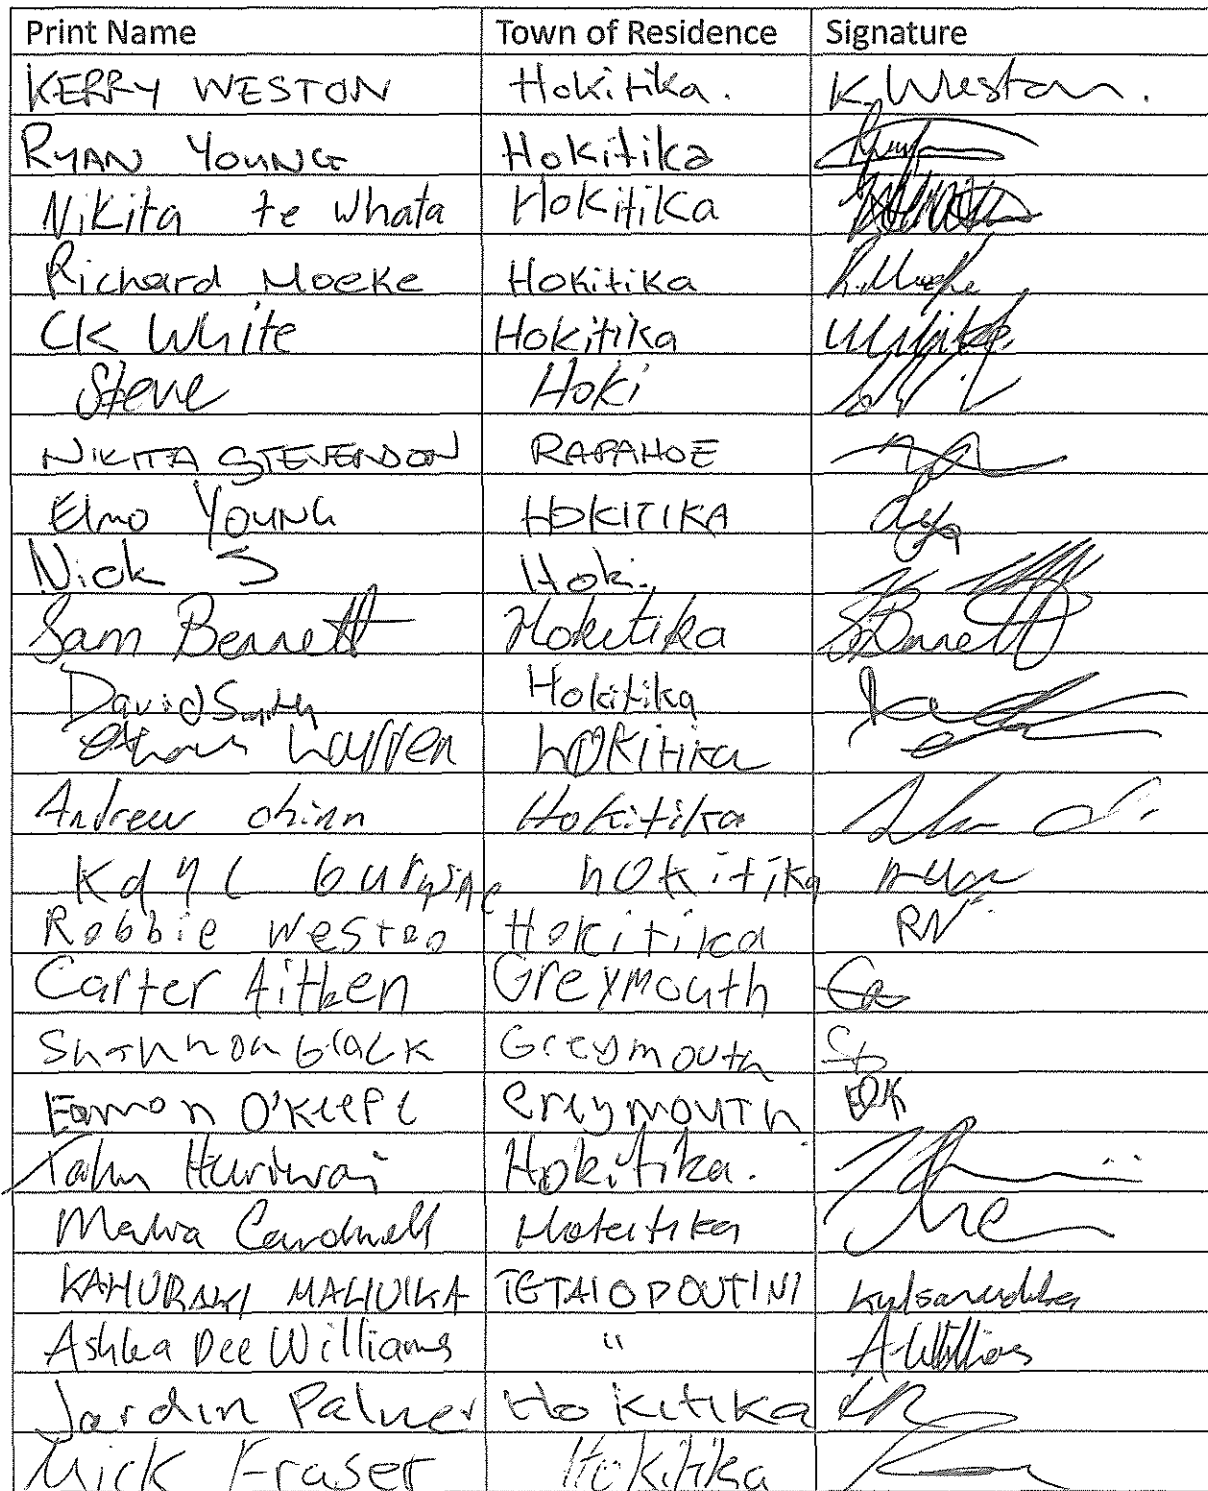 Print Name Town of Residence Signature
KERRY WESTON Hokitika. K Weston.
RYAN YOUNG Hokitika
Nikita te Whata Hokitika
Richard Moeke Hokitika R. Moeke
CK White Hokitika White
Steve Hoki
NIKITA STEVENSON RAPAHOE
Elmo YOUNG HOKITIKA
Nick S Hoki.
Sam Bennett Hokitika SBennett
David Smith Hokitika
hokitika
Andrew chinn Hokitika
hokitika
Robbie Weston Hokitika RW
Carter Aitken Greymouth Ca
Shannon black Greymouth Sb
Eamon O'Keefe Greymouth EOK
Hokitika.
Cardwell Hokitika
KAHURANGI TETAIOPOUTINI
Ashlea Dee Williams " A-Williams
Jordin Palmer Hokitika
Mick Fraser Hokitika